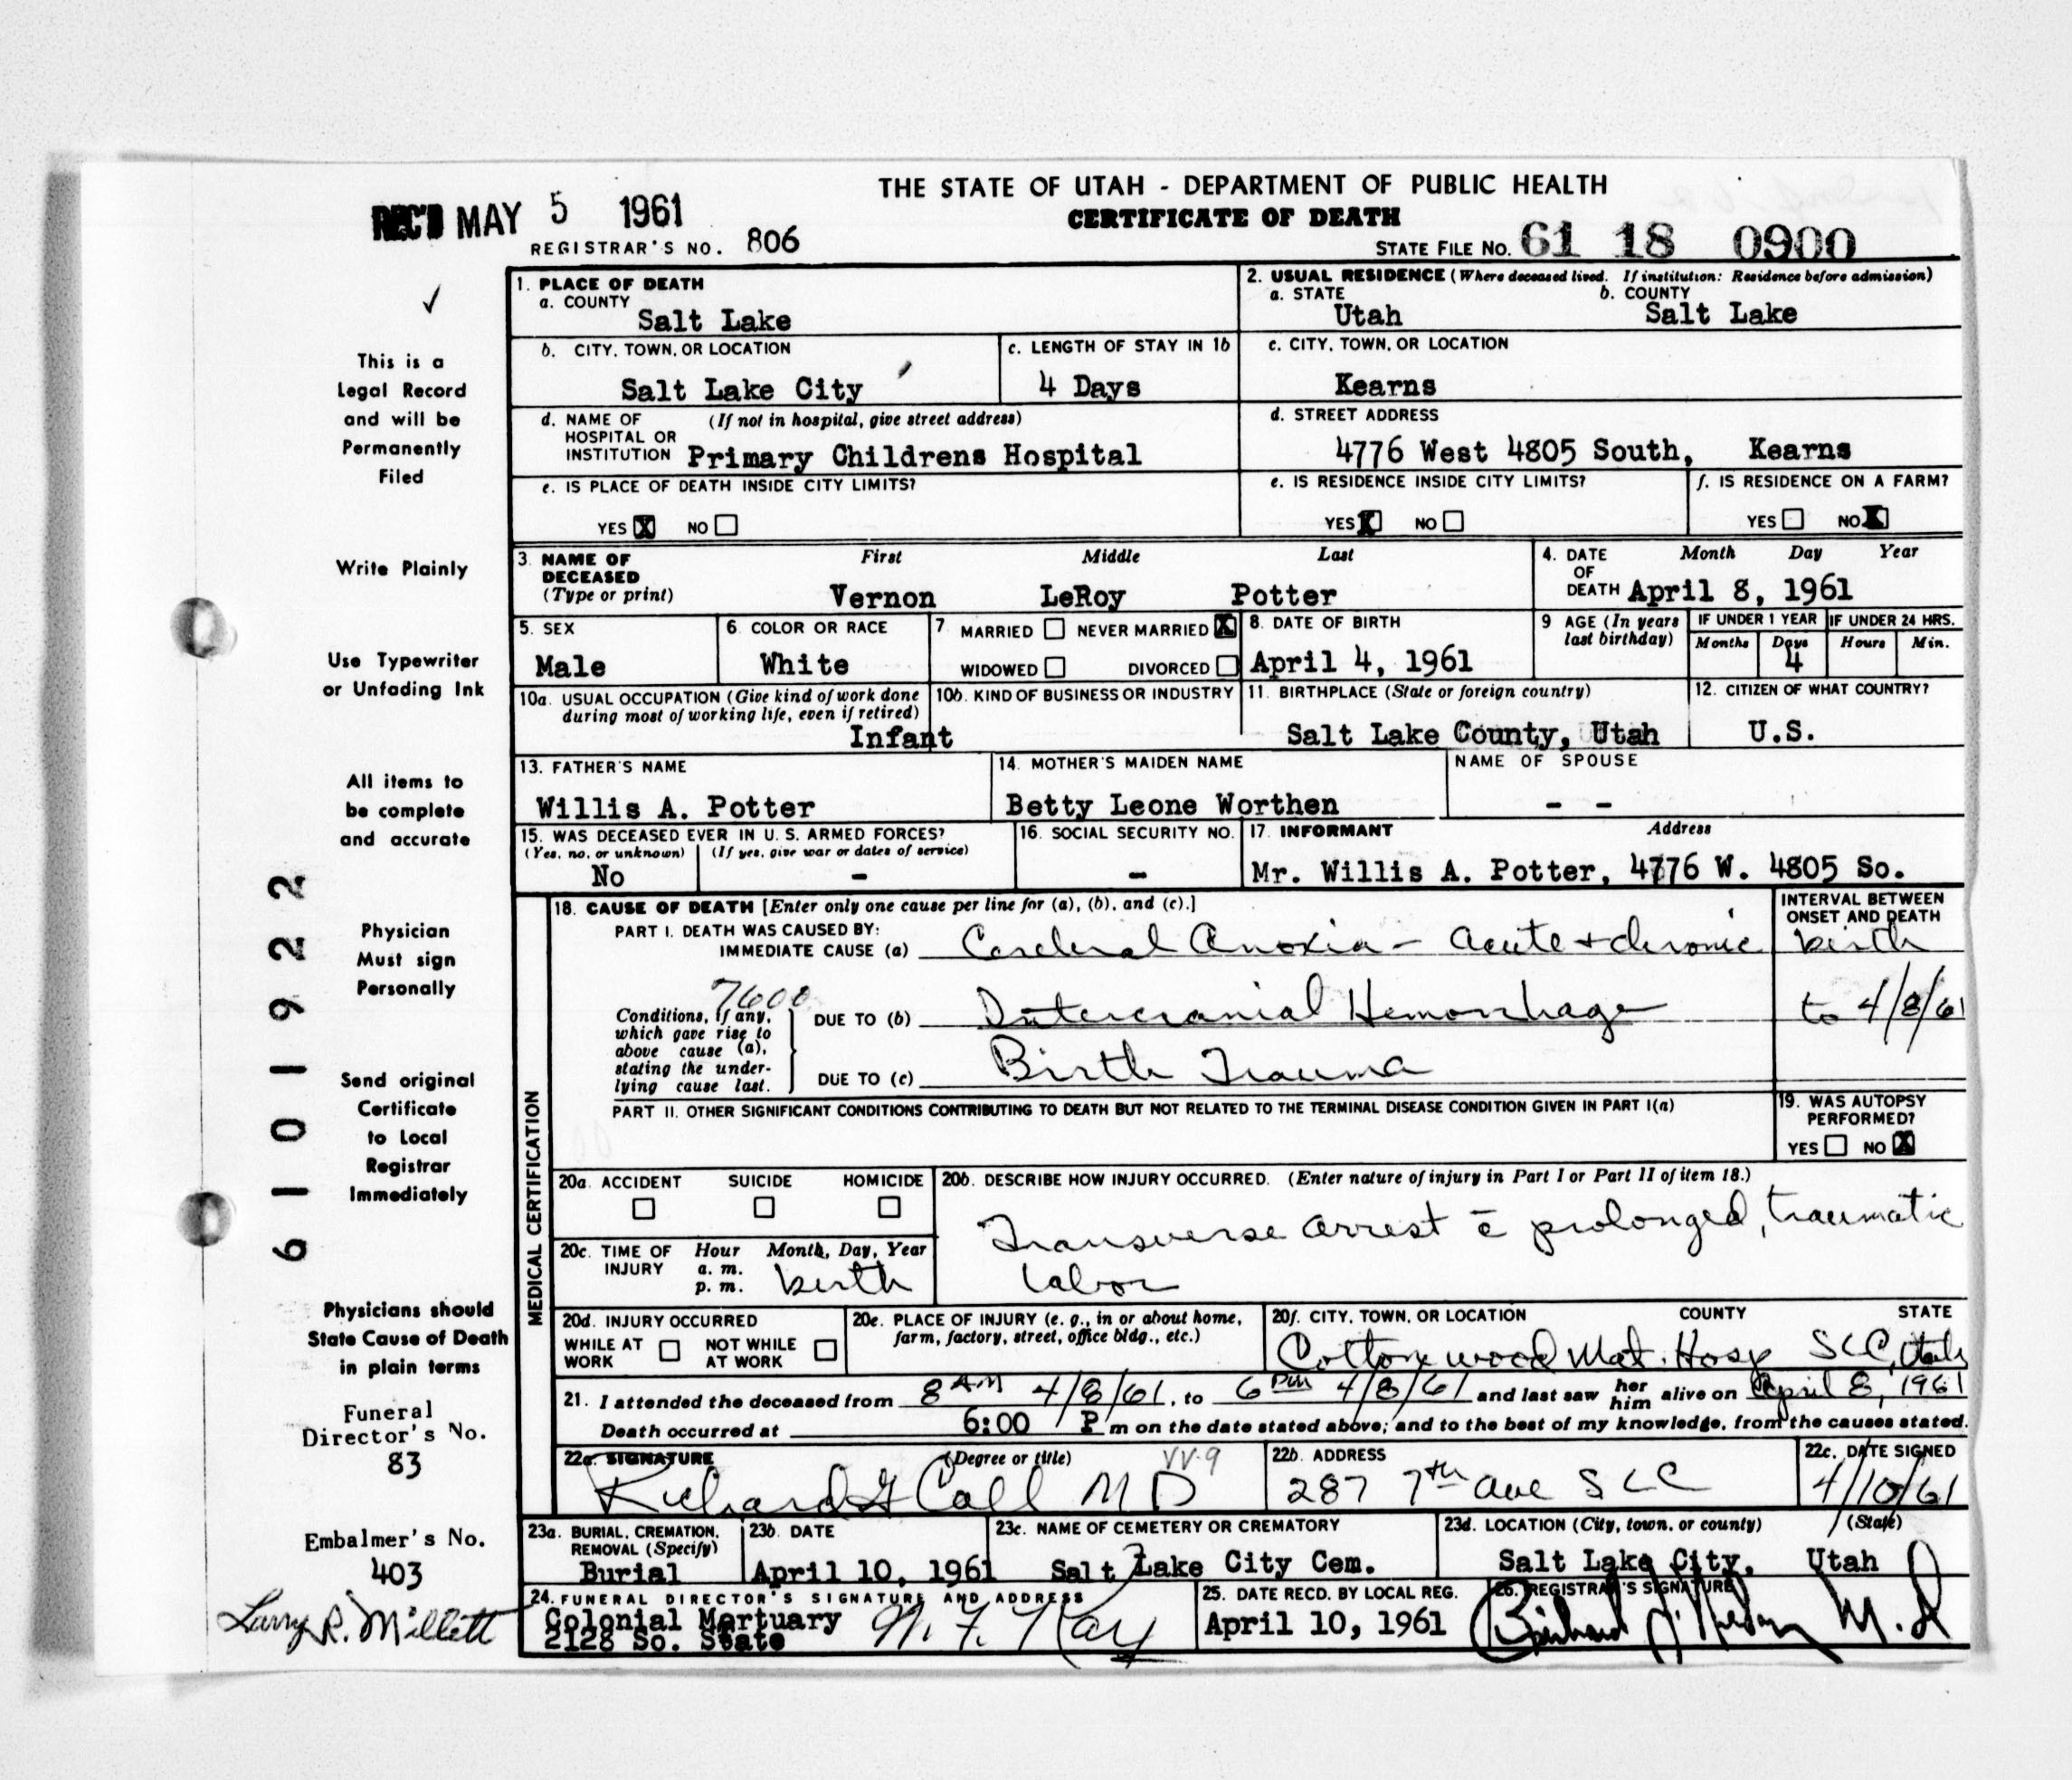 THE STATE OF UTAH - DEPARTMENT OF PUBLIC HEALTH
CERTIFICATE OF DEATH
REC'D MAY 5 1961
REGISTRAR'S NO. 806
STATE FILE NO. 61 18 0900
1. PLACE OF DEATH
a. COUNTY
Salt Lake
2. USUAL RESIDENCE (Where deceased lived. If institution: Residence before admission)
a. STATE b. COUNTY
Utah Salt Lake
b. CITY, TOWN, OR LOCATION
Salt Lake City
c. LENGTH OF STAY IN 1b
4 Days
c. CITY, TOWN, OR LOCATION
Kearns
d. NAME OF (If not in hospital, give street address)
HOSPITAL OR
INSTITUTION Primary Childrens Hospital
d. STREET ADDRESS
4776 West 4805 South, Kearns
e. IS PLACE OF DEATH INSIDE CITY LIMITS?
YES X NO
e. IS RESIDENCE INSIDE CITY LIMITS?
YES X NO
f. IS RESIDENCE ON A FARM?
YES NO X
3. NAME OF DECEASED (Type or print)
First Middle Last
Vernon LeRoy Potter
4. DATE OF DEATH Month Day Year
April 8, 1961
5. SEX
Male
6. COLOR OR RACE
White
7 MARRIED NEVER MARRIED X
WIDOWED DIVORCED
8. DATE OF BIRTH
April 4, 1961
9 AGE (In years last birthday)
IF UNDER 1 YEAR IF UNDER 24 HRS.
Months Days Hours Min.
4
10a. USUAL OCCUPATION (Give kind of work done
during most of working life, even if retired)
Infant
10b. KIND OF BUSINESS OR INDUSTRY
11. BIRTHPLACE (State or foreign country)
Salt Lake County, Utah
12. CITIZEN OF WHAT COUNTRY?
U.S.
13. FATHER'S NAME
Willis A. Potter
14. MOTHER'S MAIDEN NAME
Betty Leone Worthen
NAME OF SPOUSE
- -
15. WAS DECEASED EVER IN U. S. ARMED FORCES?
(Yes, no, or unknown) (If yes, give war or dates of service)
No -
16. SOCIAL SECURITY NO.
-
17. INFORMANT Address
Mr. Willis A. Potter, 4776 W. 4805 So.
MEDICAL CERTIFICATION
18. CAUSE OF DEATH [Enter only one cause per line for (a), (b), and (c).]
PART I. DEATH WAS CAUSED BY:
IMMEDIATE CAUSE (a) Cerebral Anoxia - acute + chronic
INTERVAL BETWEEN
ONSET AND DEATH
birth
7600
Conditions, if any,
which gave rise to
above cause (a),
stating the under-
lying cause last.
DUE TO (b) Intercranial Hemorrhage
to 4/8/61
DUE TO (c) Birth Trauma
PART II. OTHER SIGNIFICANT CONDITIONS CONTRIBUTING TO DEATH BUT NOT RELATED TO THE TERMINAL DISEASE CONDITION GIVEN IN PART I(a)
19. WAS AUTOPSY
PERFORMED?
YES NO X
20a. ACCIDENT SUICIDE HOMICIDE
20b. DESCRIBE HOW INJURY OCCURRED. (Enter nature of injury in Part I or Part II of item 18.)
Transverse arrest c̄ prolonged, traumatic
labor
20c. TIME OF INJURY Hour Month, Day, Year
a. m.
p. m. birth
20d. INJURY OCCURRED
WHILE AT WORK NOT WHILE AT WORK
20e. PLACE OF INJURY (e. g., in or about home,
farm, factory, street, office bldg., etc.)
20f. CITY, TOWN, OR LOCATION COUNTY STATE
Cottonwood Mat. Hosp SLC, Utah
21. I attended the deceased from 8 AM 4/8/61, to 6 PM 4/8/61 and last saw her him alive on April 8, 1961
Death occurred at 6:00 P m on the date stated above; and to the best of my knowledge, from the causes stated.
22a. SIGNATURE (Degree or title)
Richard G Call MD
22b. ADDRESS
287 7th Ave SLC
22c. DATE SIGNED
4/10/61
23a. BURIAL, CREMATION,
REMOVAL (Specify)
Burial
23b. DATE
April 10, 1961
23c. NAME OF CEMETERY OR CREMATORY
Salt Lake City Cem.
23d. LOCATION (City, town, or county) (State)
Salt Lake City, Utah
24. FUNERAL DIRECTOR'S SIGNATURE AND ADDRESS
Colonial Mortuary
2128 So. State
25. DATE RECD. BY LOCAL REG.
April 10, 1961
26. REGISTRAR'S SIGNATURE
This is a
Legal Record
and will be
Permanently
Filed
Write Plainly
Use Typewriter
or Unfading Ink
All items to
be complete
and accurate
Physician
Must sign
Personally
Send original
Certificate
to Local
Registrar
Immediately
Physicians should
State Cause of Death
in plain terms
Funeral
Director's No.
83
Embalmer's No.
403
Larry R. Millett
6101922